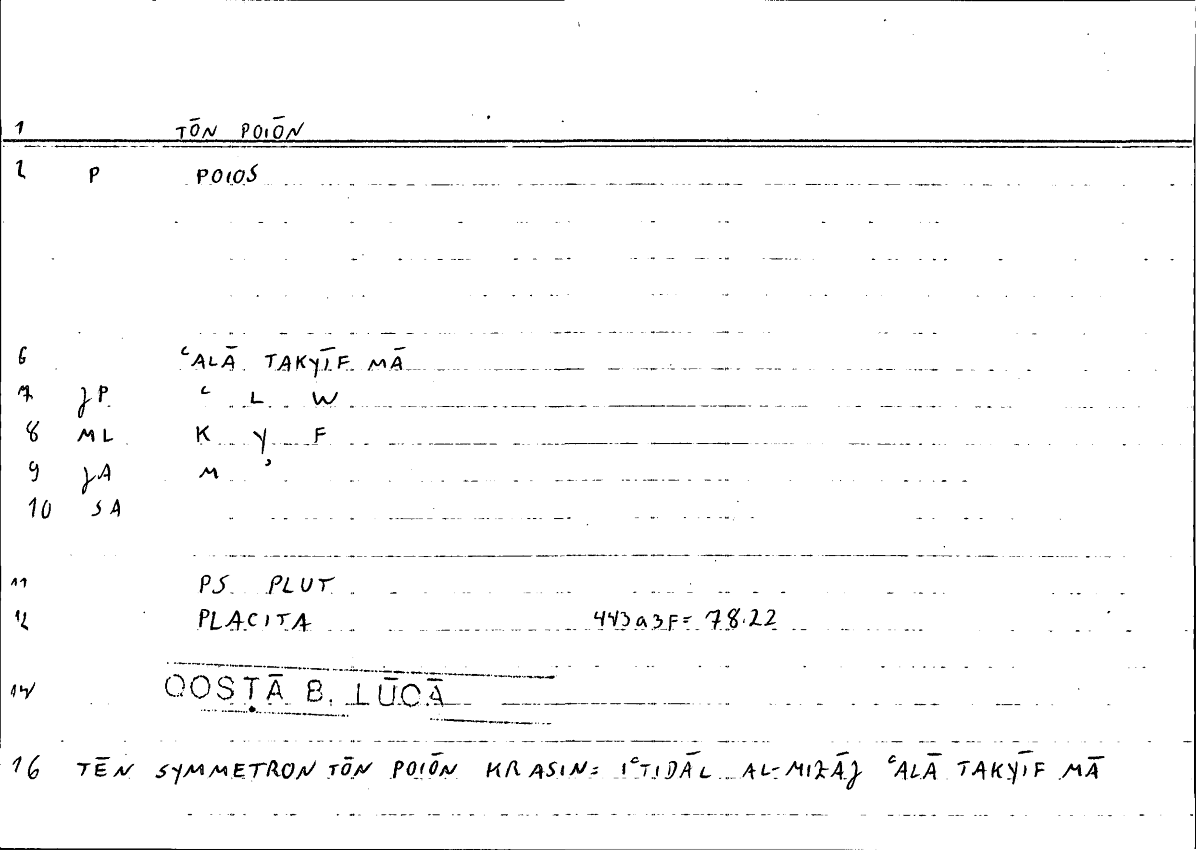 1 TŌN POIŌN
2 P POIOS
6 ʿALĀ TAKYĪF MĀ
7 JP ʿ L W
8 ML K Y F
9 JA M ʾ
10 SA
11 PS PLUT
12 PLACITA 443a3F= 78.22
14 QOSṬĀ B. LŪQĀ
16 TĒN SYMMETRON TŌN POIŌN KRASIN= IʿTIDĀL AL-MIZĀJ ʿALĀ TAKYĪF MĀ